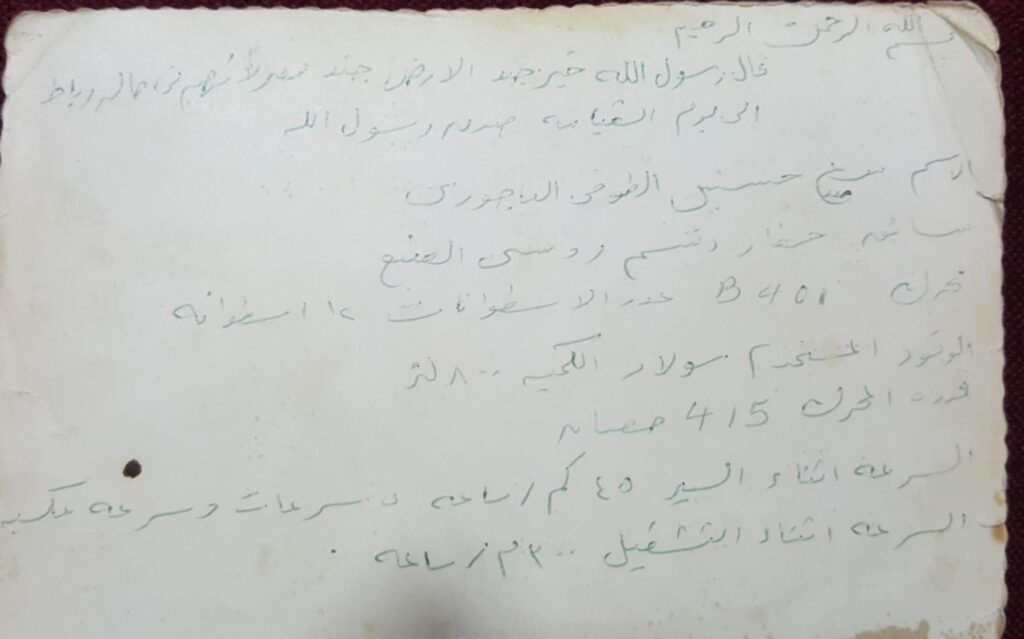 بسم الله الرحمن الرحيم
قال رسول الله خير جند الارض جند مصر لأنهم فى حاله رباط
الى يوم القيامه صدق رسول الله
الاسم حسنين الطوخى الباجورى
سائق حفار روسى الصنع
محرك B 401 عدد الاسطوانات ١٢ اسطوانه
الوقود المستخدم سولار الكميه ٨٠٠ لتر
قدرت المحرك 415 حصان
السرعه اثناء السير ٤٥ كم / ساعه ٥ سرعات وسرعه عكسيه
السرعه اثناء التشغيل ٣٠٠ م / ساعه